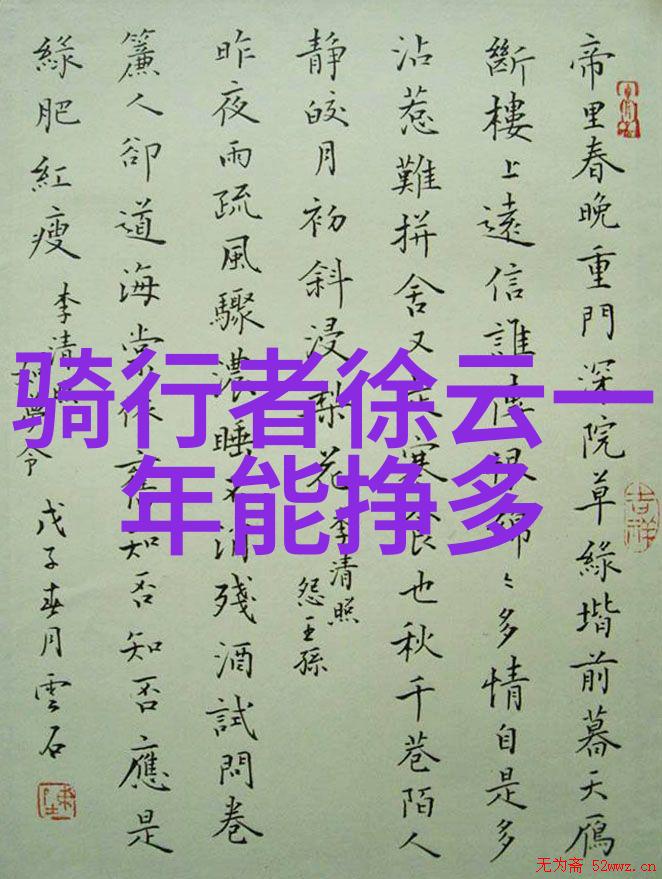 骑行者徐云一
年能挣多
帝里春晚重門深院草緑堦前暮天鴈
斷樓上遠信誰傳恨綿〻多情自是多
沾惹難拼舍又是寒食也秋千巷陌人
静皎月初斜浸梨花
李清照
怨王孫
昨夜雨疏風驟濃睡不消殘酒試問卷
簾人卻道海棠依舊知否知否應是
緑肥紅瘦
李清照
如夢令
戊子春月雲石
吉祥
无为斋 52wwz.cn